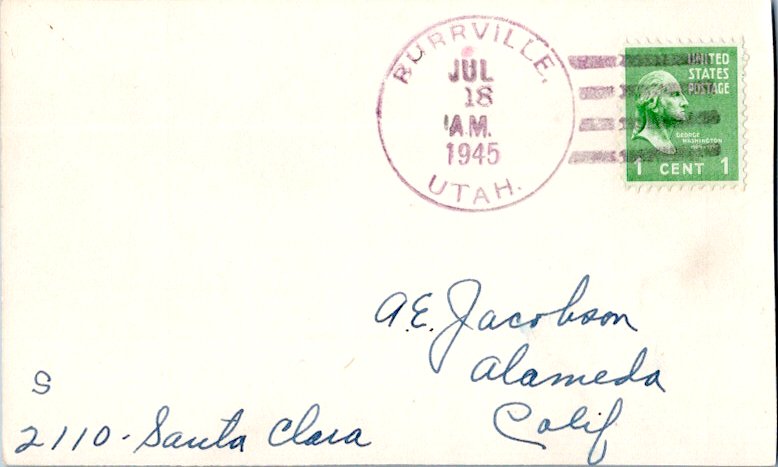 BURRVILLE,
JUL
18
A.M.
1945
UTAH.
UNITED
STATES
POSTAGE
GEORGE
WASHINGTON
1 CENT 1
A.E. Jacobson
Alameda
Calif
S
2110 - Santa Clara